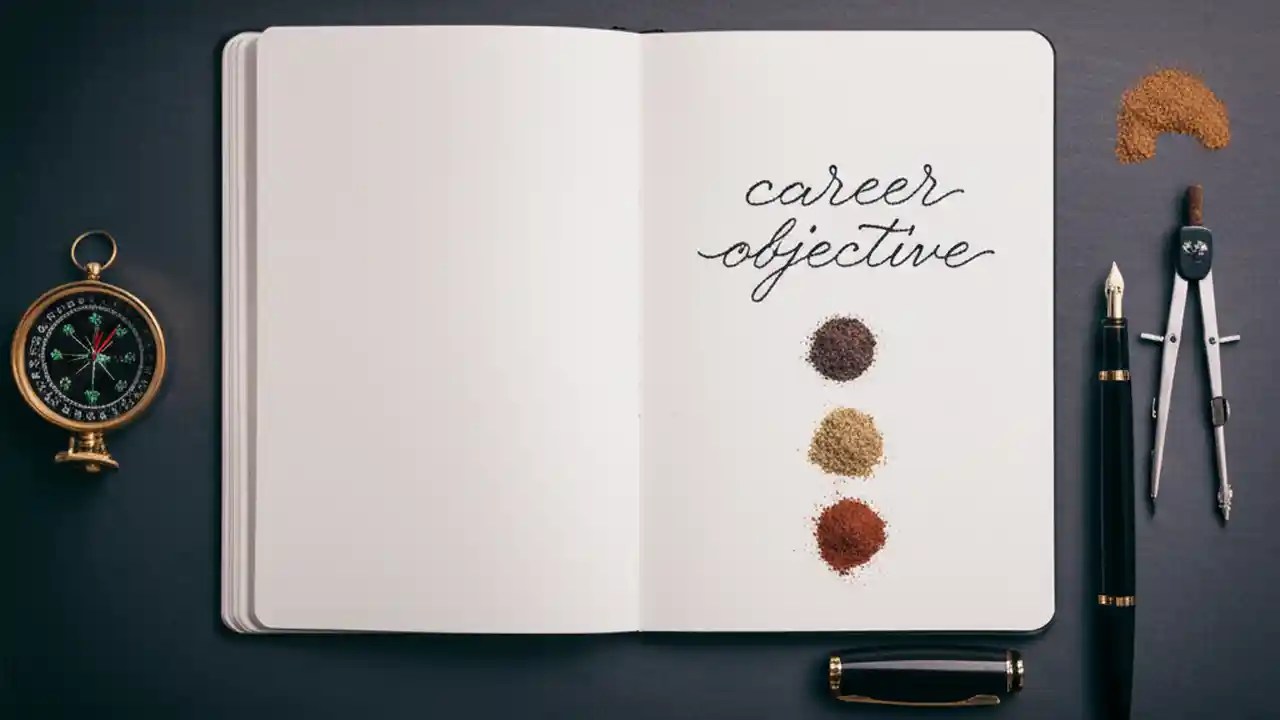 career
objective